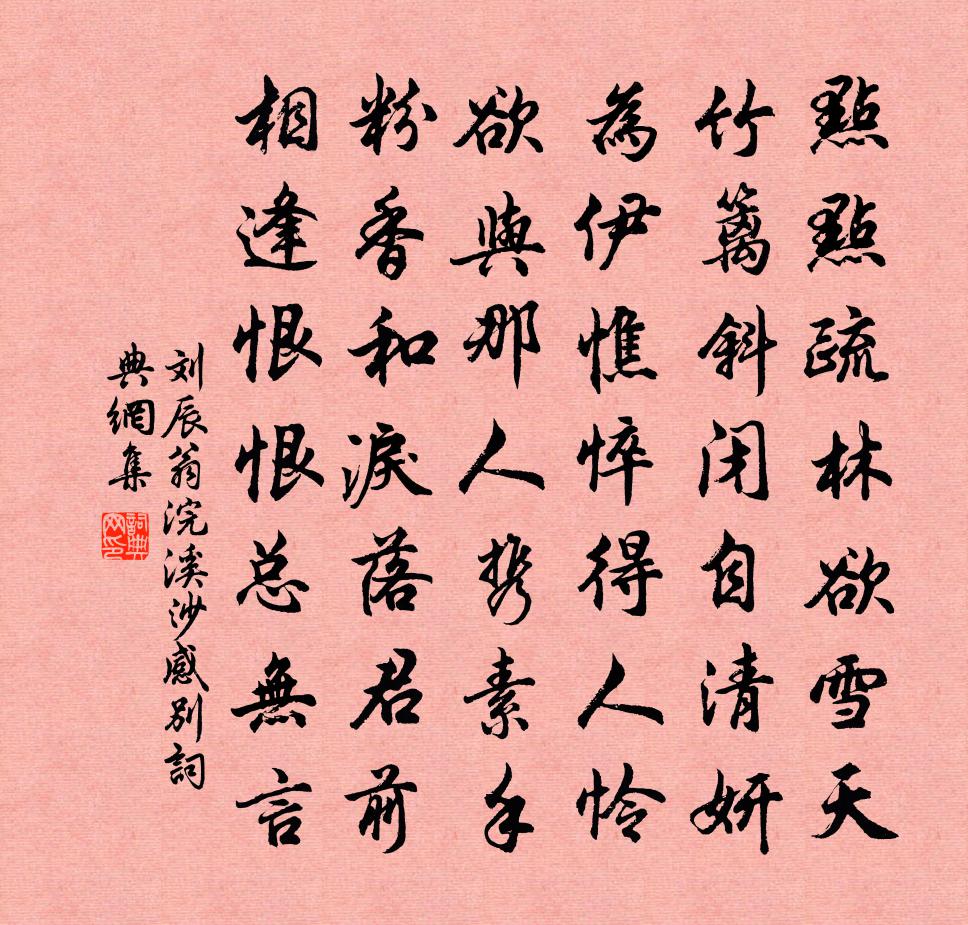 點點疏林欲雪天
竹篱斜闭自清妍
為伊憔悴得人怜
欲與那人携素手
粉香和淚落君前
相逢恨恨总無言
刘辰翁浣溪沙感别詞
典網集
詞典網印